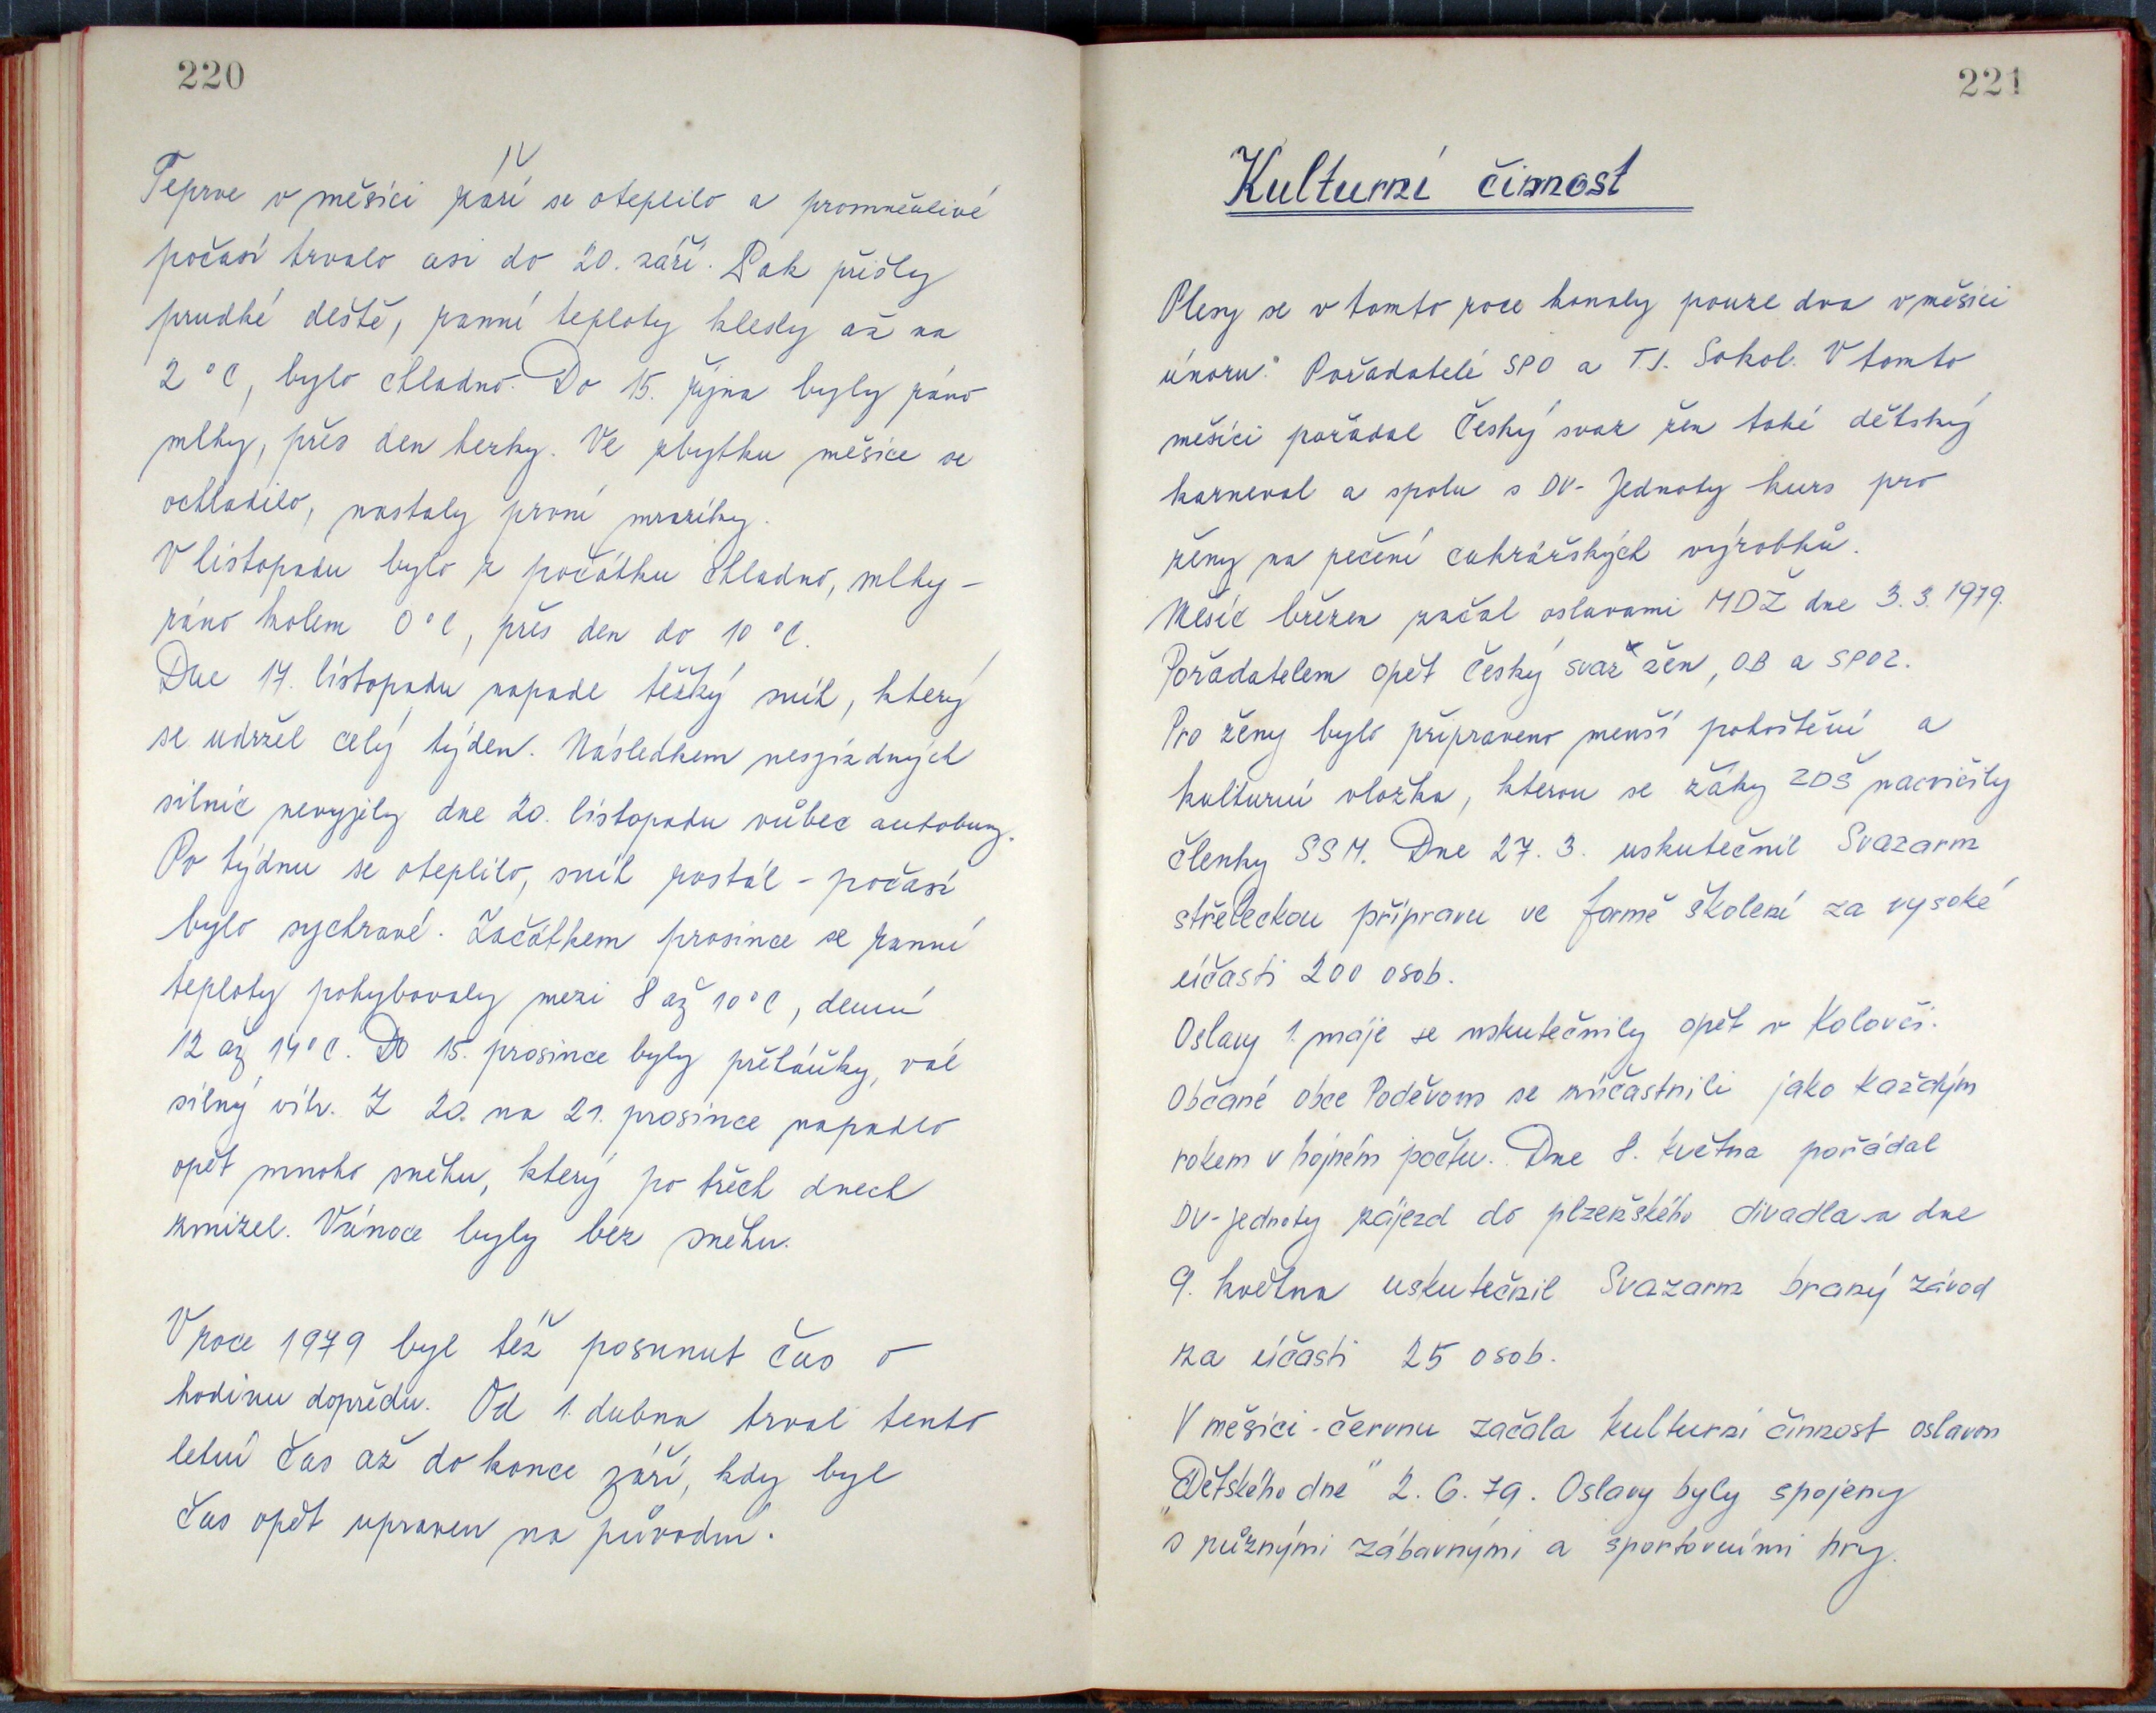 220
Teprve v měsíci září se oteplilo a proměnlivé
počasí trvalo asi do 20. září. Pak přišly
prudké deště, ranní teploty klesly až na
2 °C, bylo chladno. Do 15. října byly ráno
mlhy, přes den hezky. Ve zbytku měsíce se
ochladilo, nastaly první mrazíky.
V listopadu bylo z počátku chladno, mlhy -
ráno kolem 0 °C, přes den do 10 °C.
Dne 17. listopadu napadl těžký sníh, který
se udržel celý týden. Následkem nesjízdných
silnic nevyjely dne 20. listopadu vůbec autobusy.
Po týdnu se oteplilo, sníh roztál - počasí
bylo sychravé. Začátkem prosince se ranní
teploty pohybovaly mezi 8 až 10 °C, denní
12 až 14 °C. Do 15. prosince byly přeháňky, vál
silný vítr. Z 20. na 21. prosince napadlo
opět mnoho sněhu, který po třech dnech
zmizel. Vánoce byly bez sněhu.
V roce 1979 byl též posunut čas o
hodinu dopředu. Od 1. dubna trval tento
letní čas až do konce září, kdy byl
čas opět upraven na původní.
221
Kulturní činnost
Plesy se v tomto roce konaly pouze dva v měsíci
únoru. Pořadatelé SPO a T.J. Sokol. V tomto
měsíci pořádal Český svaz žen také dětský
karneval a spolu s DV- Jednoty kurs pro
ženy na pečení cukrářských výrobků.
Měsíc březen začal oslavami MDŽ dne 3. 3. 1979.
Pořadatelem opět Český svaz žen, OB a SPOZ.
Pro ženy bylo připraveno menší pohoštění a
kulturní vložka, kterou se žáky ZDŠ nacvičily
členky SSM. Dne 27. 3. uskutečnil Svazarm
střeleckou přípravu ve formě školení za vysoké
účasti 200 osob.
Oslavy 1. máje se uskutečnily opět v Kolovči.
Občané obce Poděvous se zúčastnili jako každým
rokem v hojném počtu. Dne 8. května pořádal
DV-Jednoty zájezd do plzeňského divadla a dne
9. května uskutečnil Svazarm braný závod
za účasti 25 osob.
V měsíci - červnu začala kulturní činnost oslavou
„Dětského dne" 2. 6. 79. Oslavy byly spojeny
s různými zábavnými a sportovními hry.